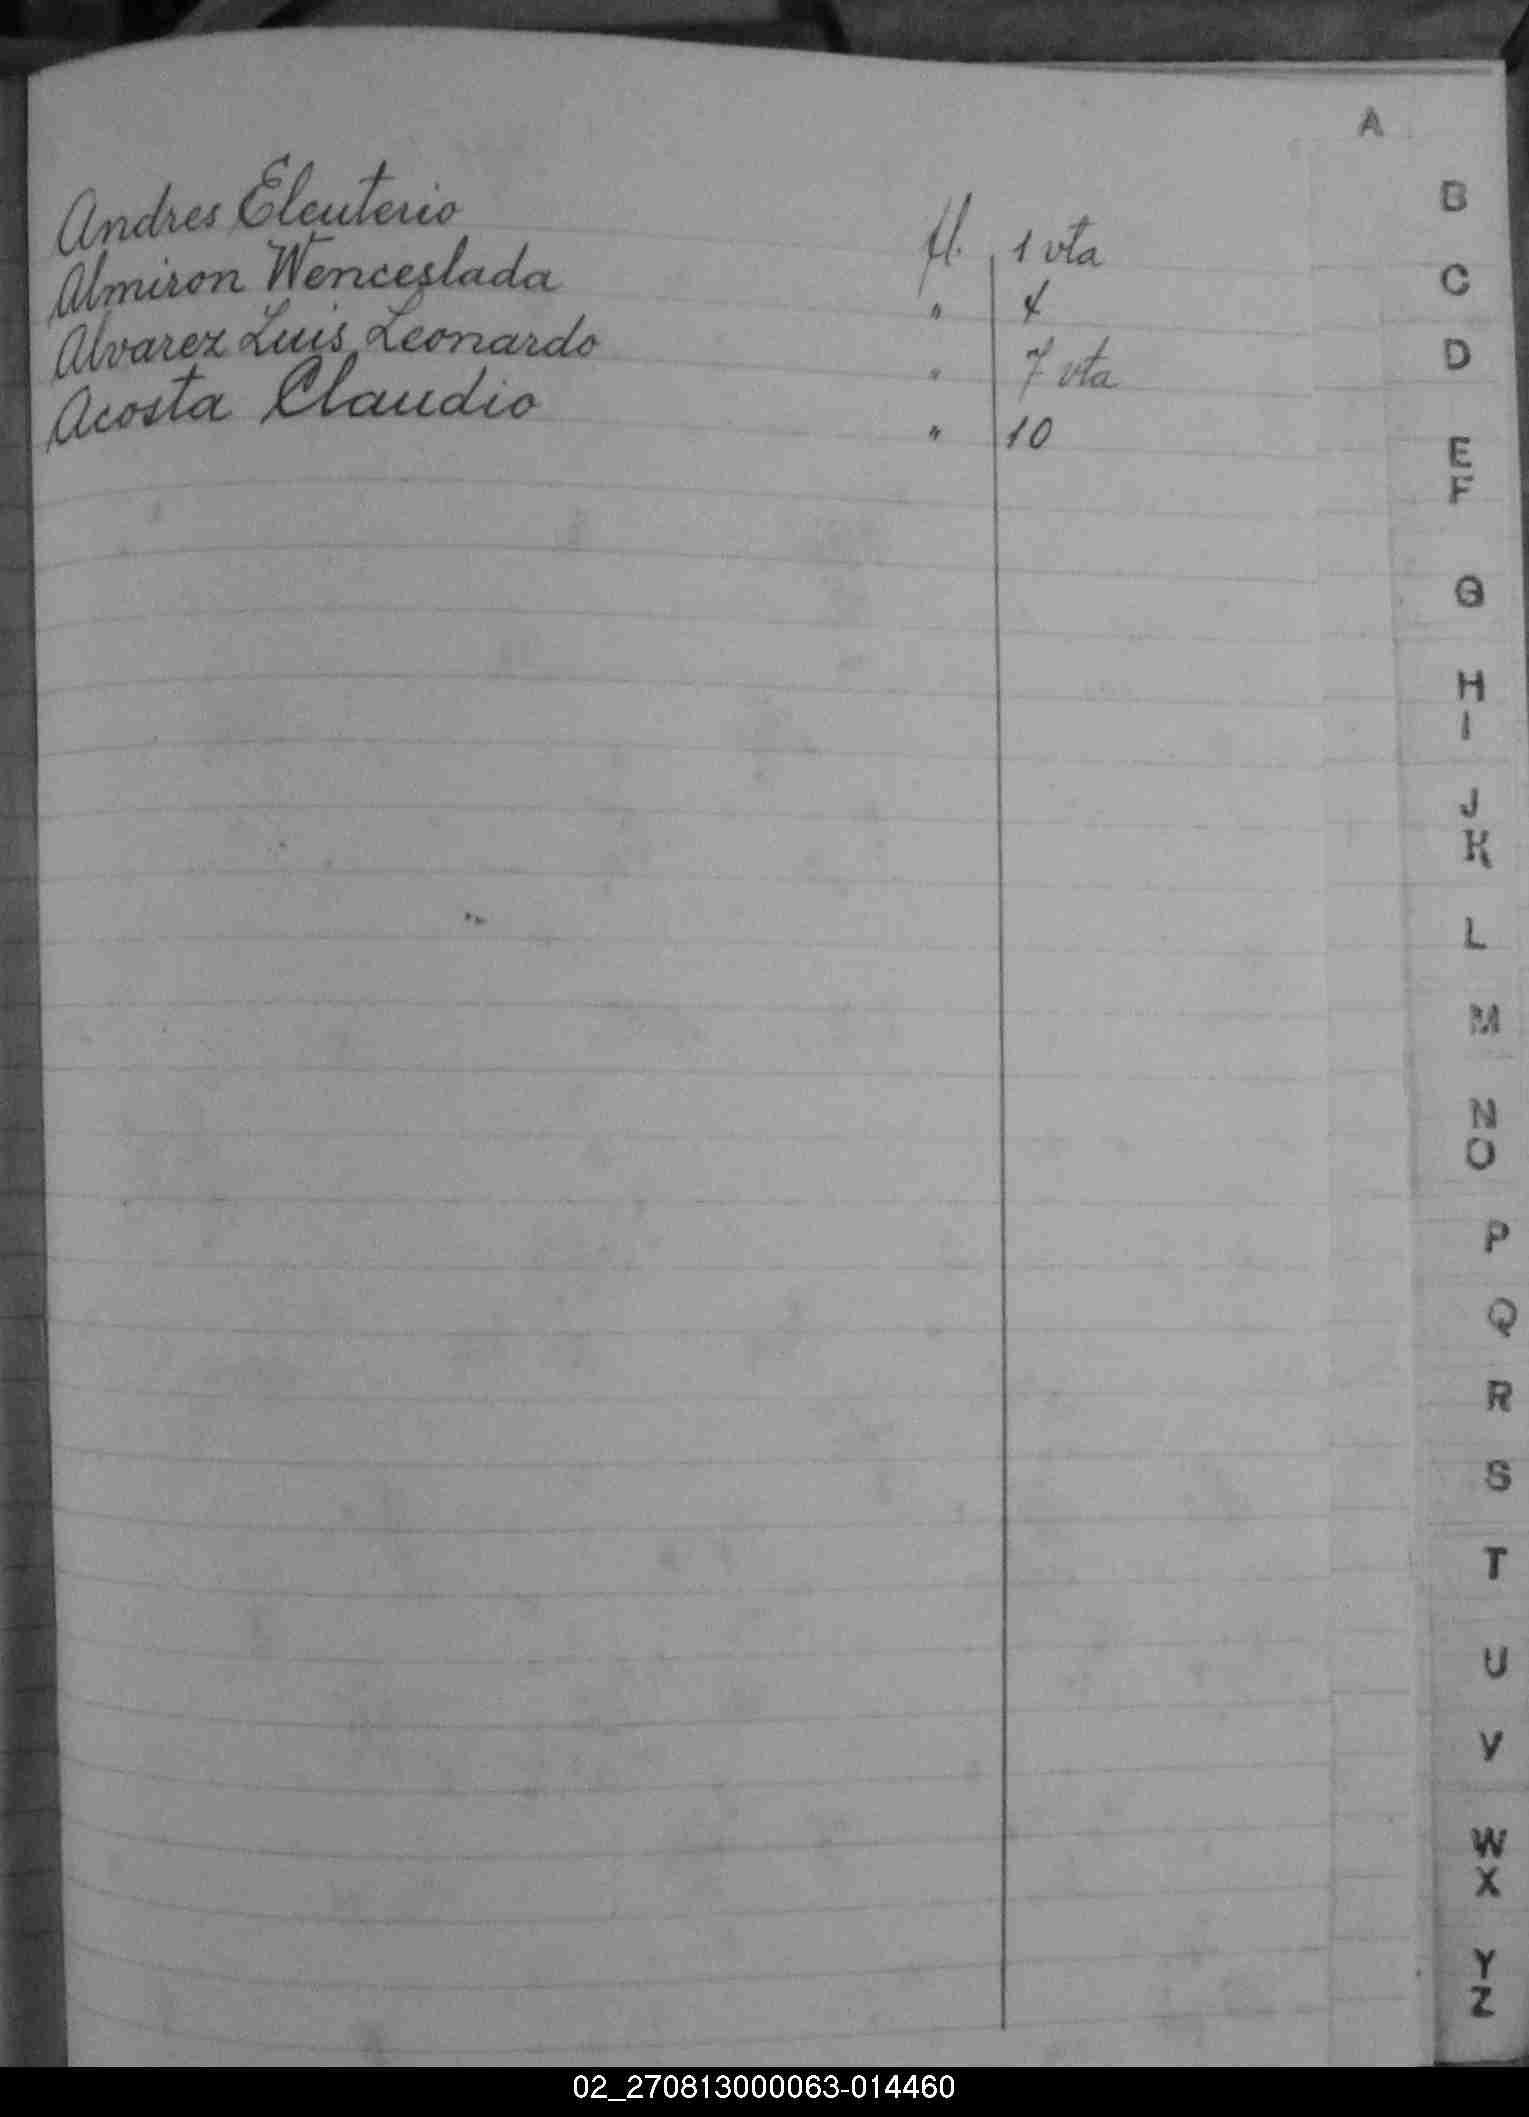 A
Andres Eleuterio fl. 1 vta
Almiron Wenceslada " 4
Alvarez Luis Leonardo " 7 vta
Acosta Claudio " 10
B
C
D
E
F
G
H
I
J
K
L
M
N
O
P
Q
R
S
T
U
V
W
X
Y
Z
02_270813000063-014460